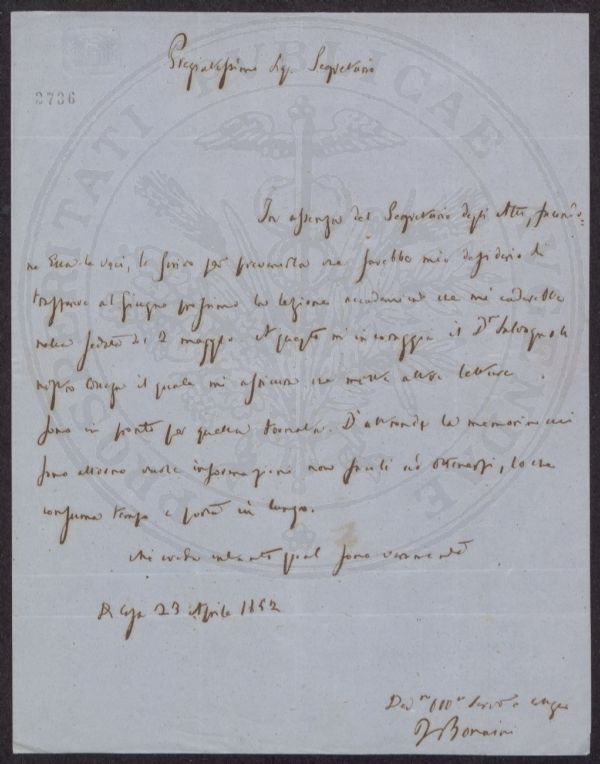 Pregiatissimo Sig. Segretario
2736
PROSPERITATI PUBLICAE AUGENDAE
In assenza del Segretario degli Atti, facendo-
ne Ella le veci, le scrivo per prevenirla che sarebbe mio desiderio di
trasferire al Giugno prossimo la lezione accademica che mi caderebbe
nella seduta di 2 maggio. A questo mi incoraggia il Dr Salvagnoli
nostro collega il quale mi assicura che molte altre letture
sono in pronto per quella tornata. D'altronde la memoria cui
sono attorno vuole informazioni non facili ad ottenersi, lo che
consuma tempo e porta in lungo.
Mi creda intanto qual sono veramente
Di Casa 23 Aprile 1852
Dev.mo Obb.mo Servo e collega
F Bonaini